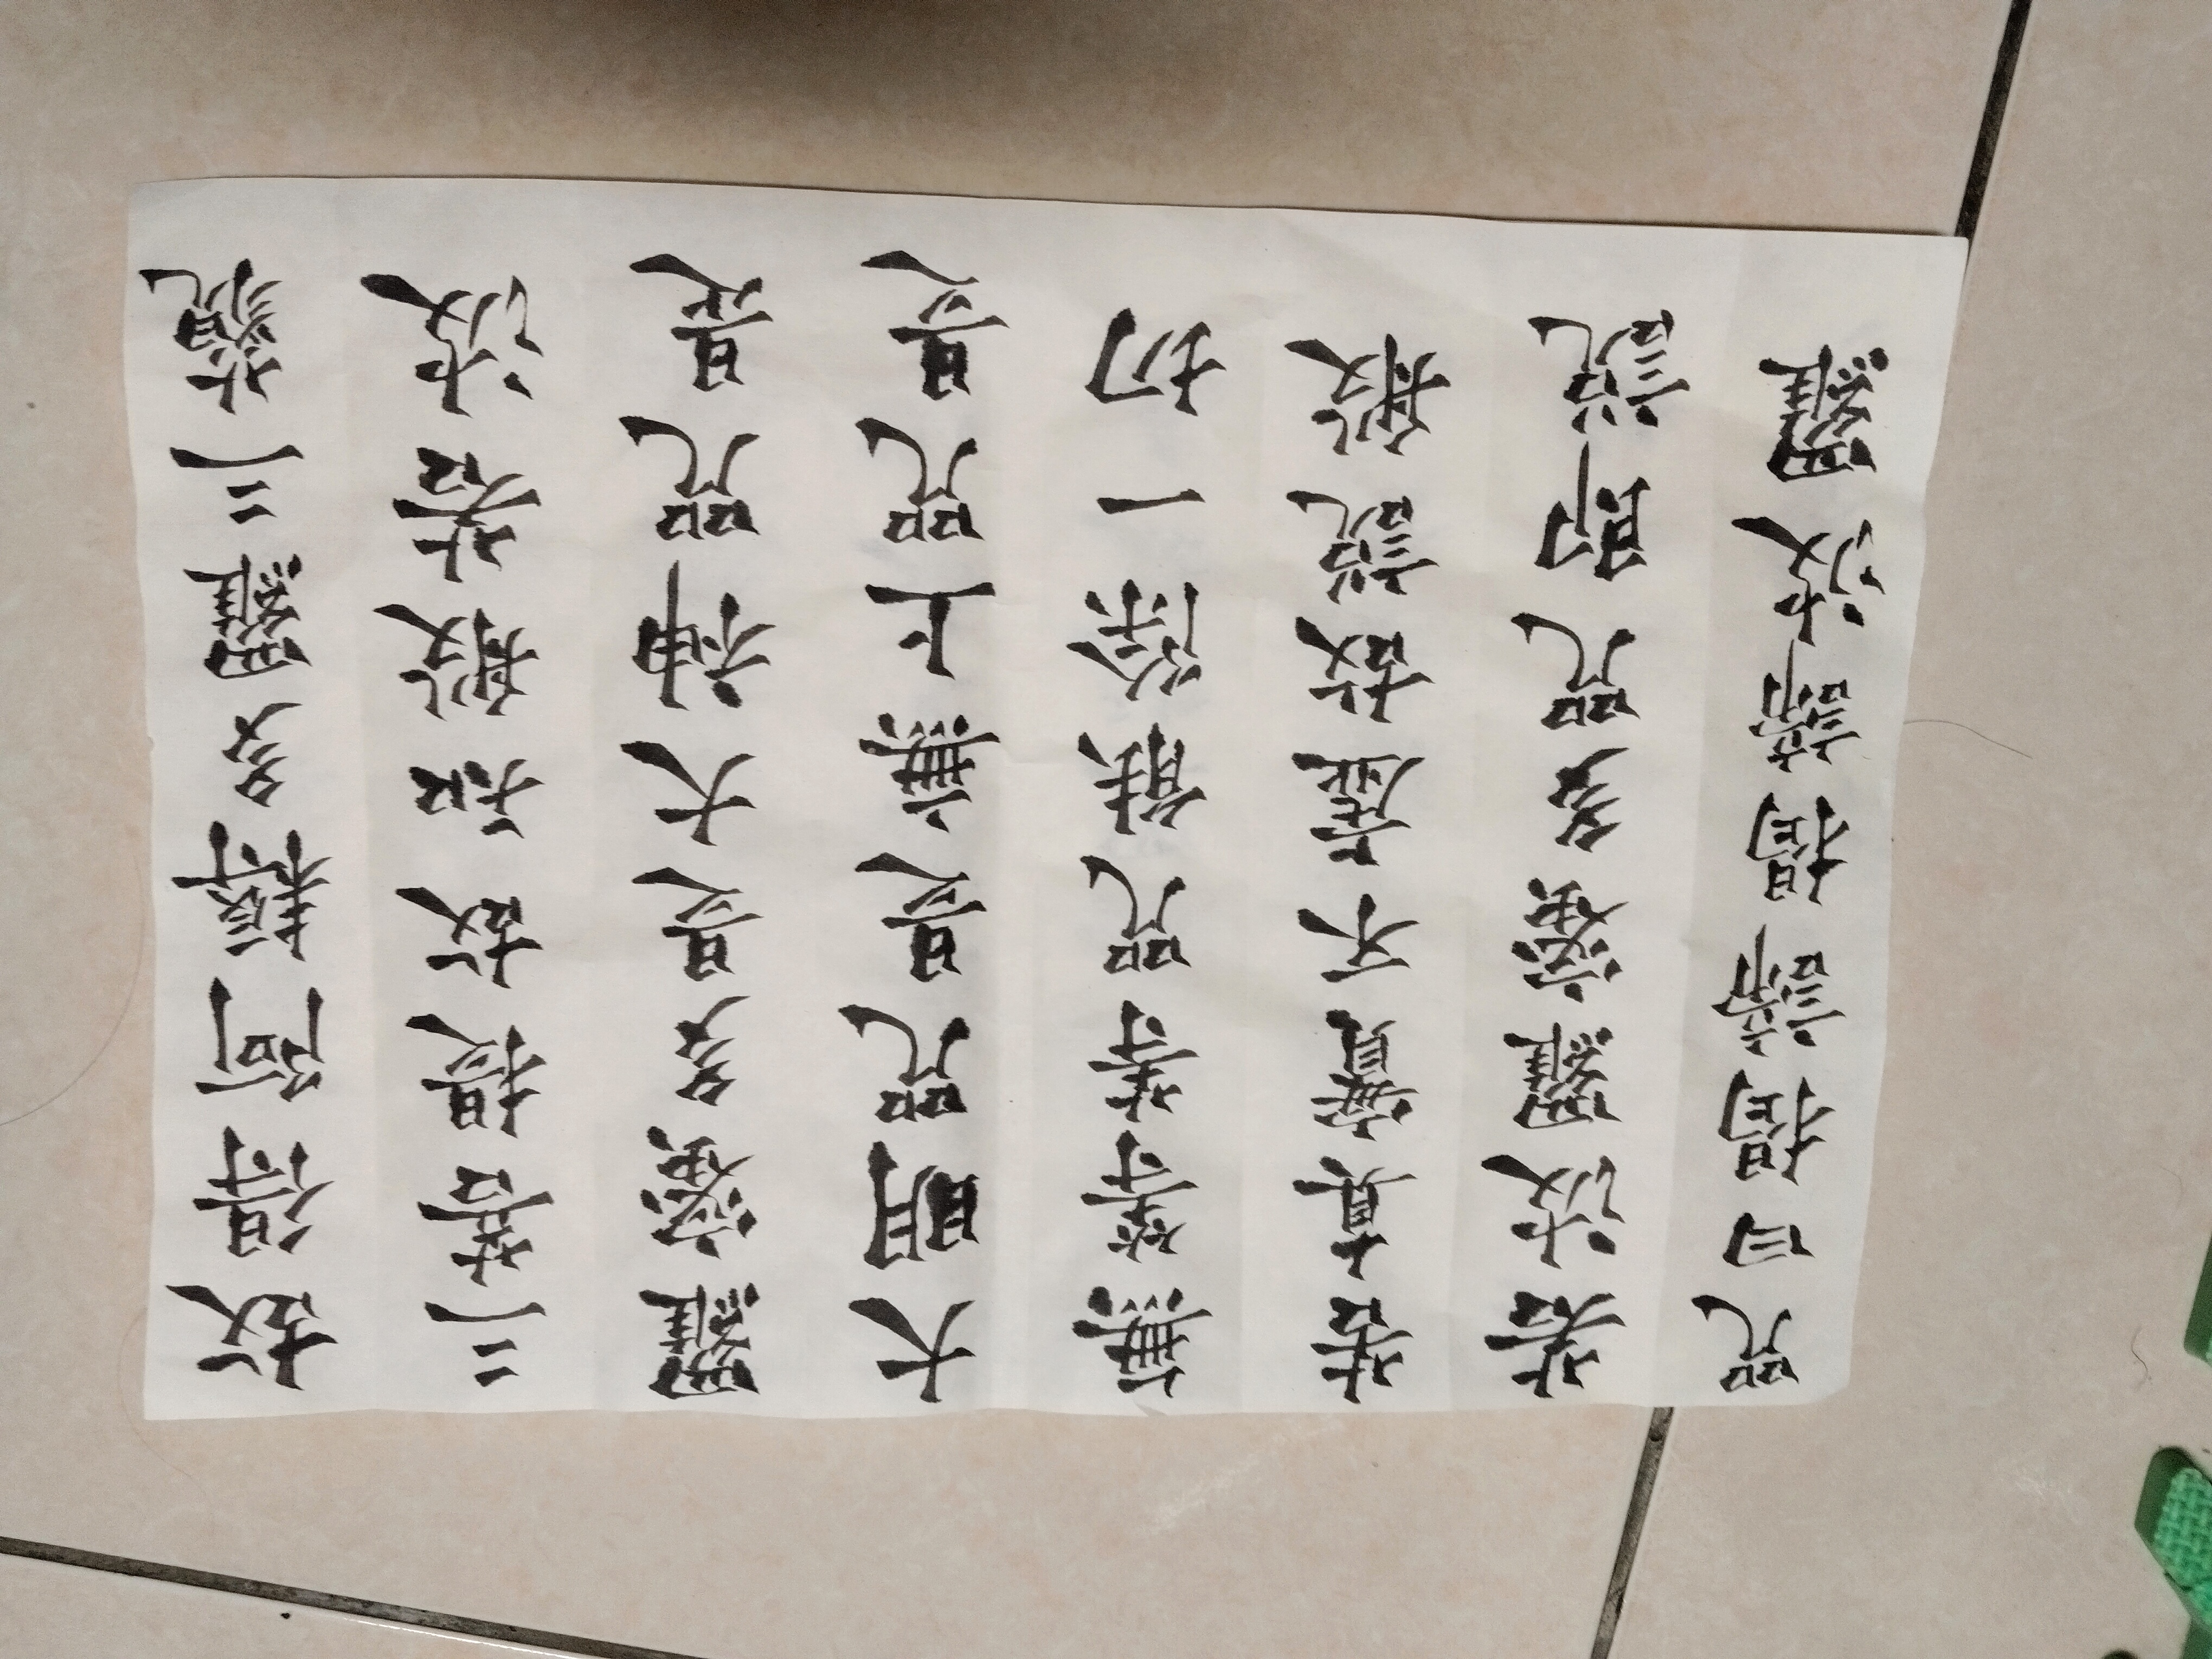 故得阿耨多羅三藐
三菩提故知般若波
羅蜜多是大神咒是
大明咒是無上咒是
無等等咒能除一切
苦真實不虛故說般
若波羅蜜多咒即說
咒曰揭諦揭諦波羅